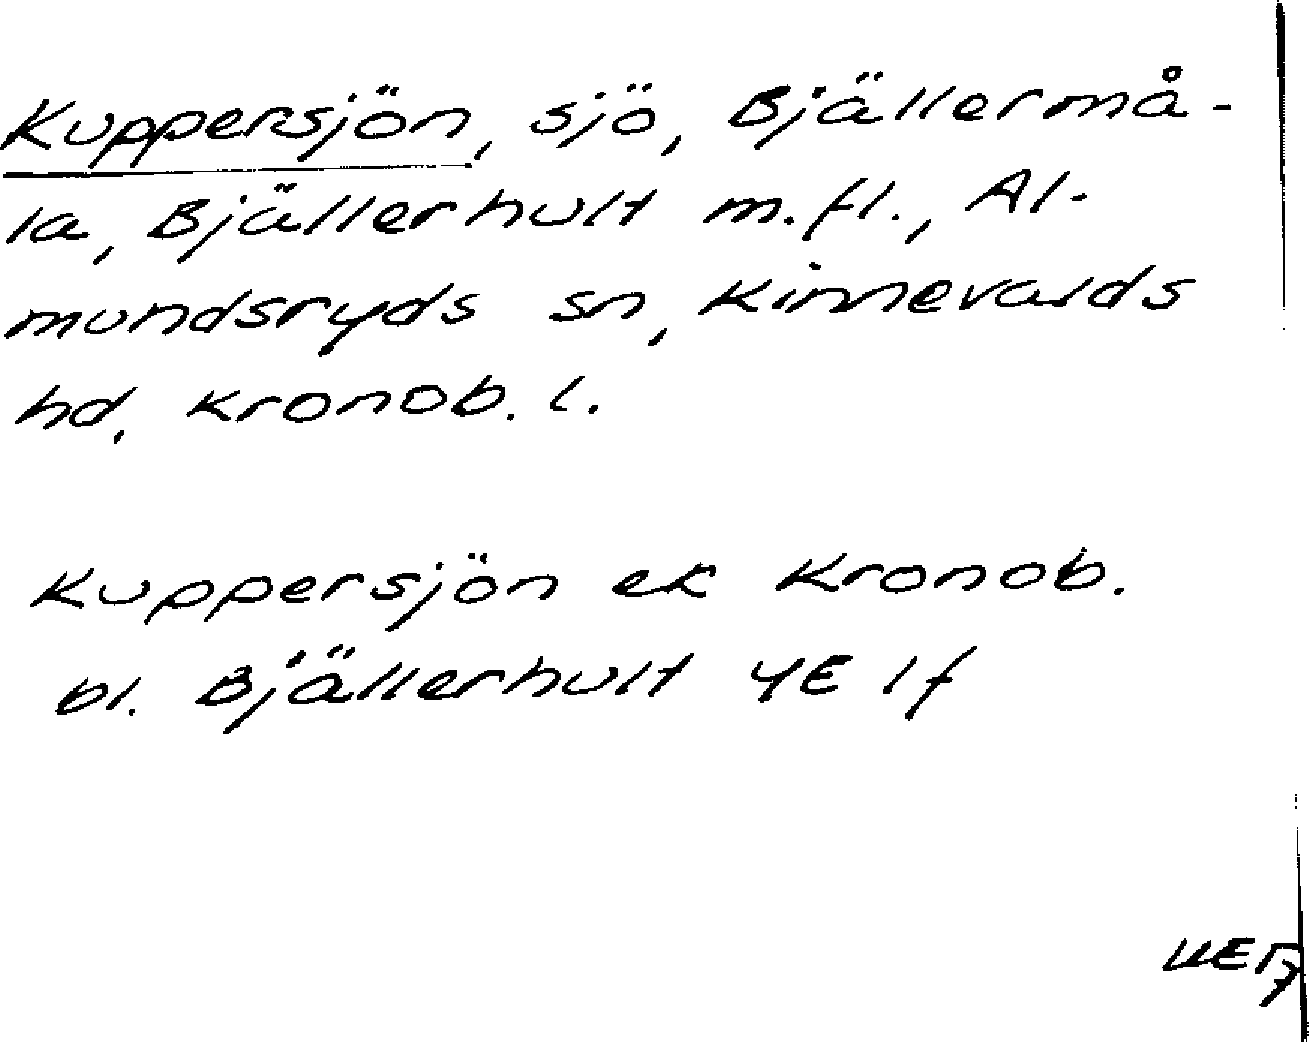 Kuppersjön, sjö, Bjällermå-
la, Bjällerhult m.fl., Al-
mundsryds sn, Kinnevalds
hd, Kronob. l.
Kuppersjön ek Kronob.
bl. Bjällerhult 4E 1f